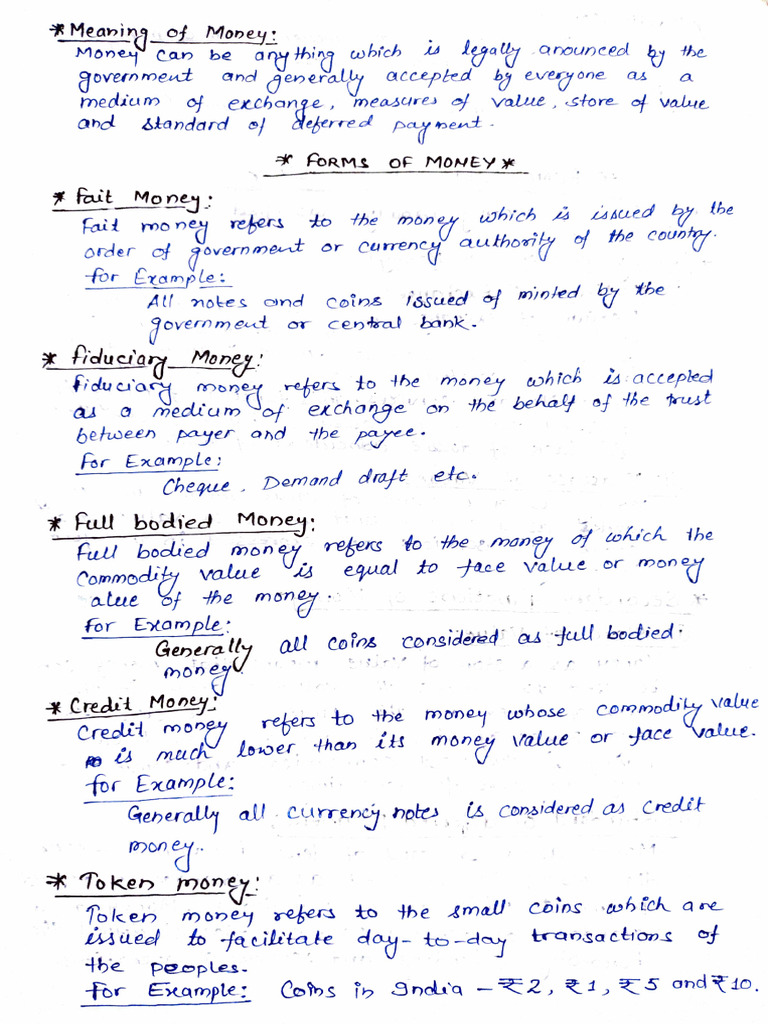 * Meaning of Money:
Money can be anything which is legally anounced by the
government and generally accepted by everyone as a
medium of exchange, measures of value, store of value
and standard of deferred payment.
* FORMS OF MONEY *
* Fait Money:
Fait money refers to the money which is issued by the
order of government or currency authority of the country.
For Example:
All notes and coins issued of minted by the
government or central bank.
* Fiduciary Money:
Fiduciary money refers to the money which is accepted
as a medium of exchange on the behalf of the trust
between payer and the payee.
For Example:
Cheque, Demand draft etc.
* Full bodied Money:
Full bodied money refers to the money of which the
commodity value is equal to face value or money
alue of the money.
For Example:
Generally all coins considered as full bodied.
money.
* Credit Money:
Credit money refers to the money whose commodity value
is much lower than its money value or face value.
For Example:
Generally all currency notes is considered as credit
money.
* Token money:
Token money refers to the small coins which are
issued to facilitate day-to-day transactions of
the peoples.
For Example: Coins in India - ₹2, ₹1, ₹5 and ₹10.